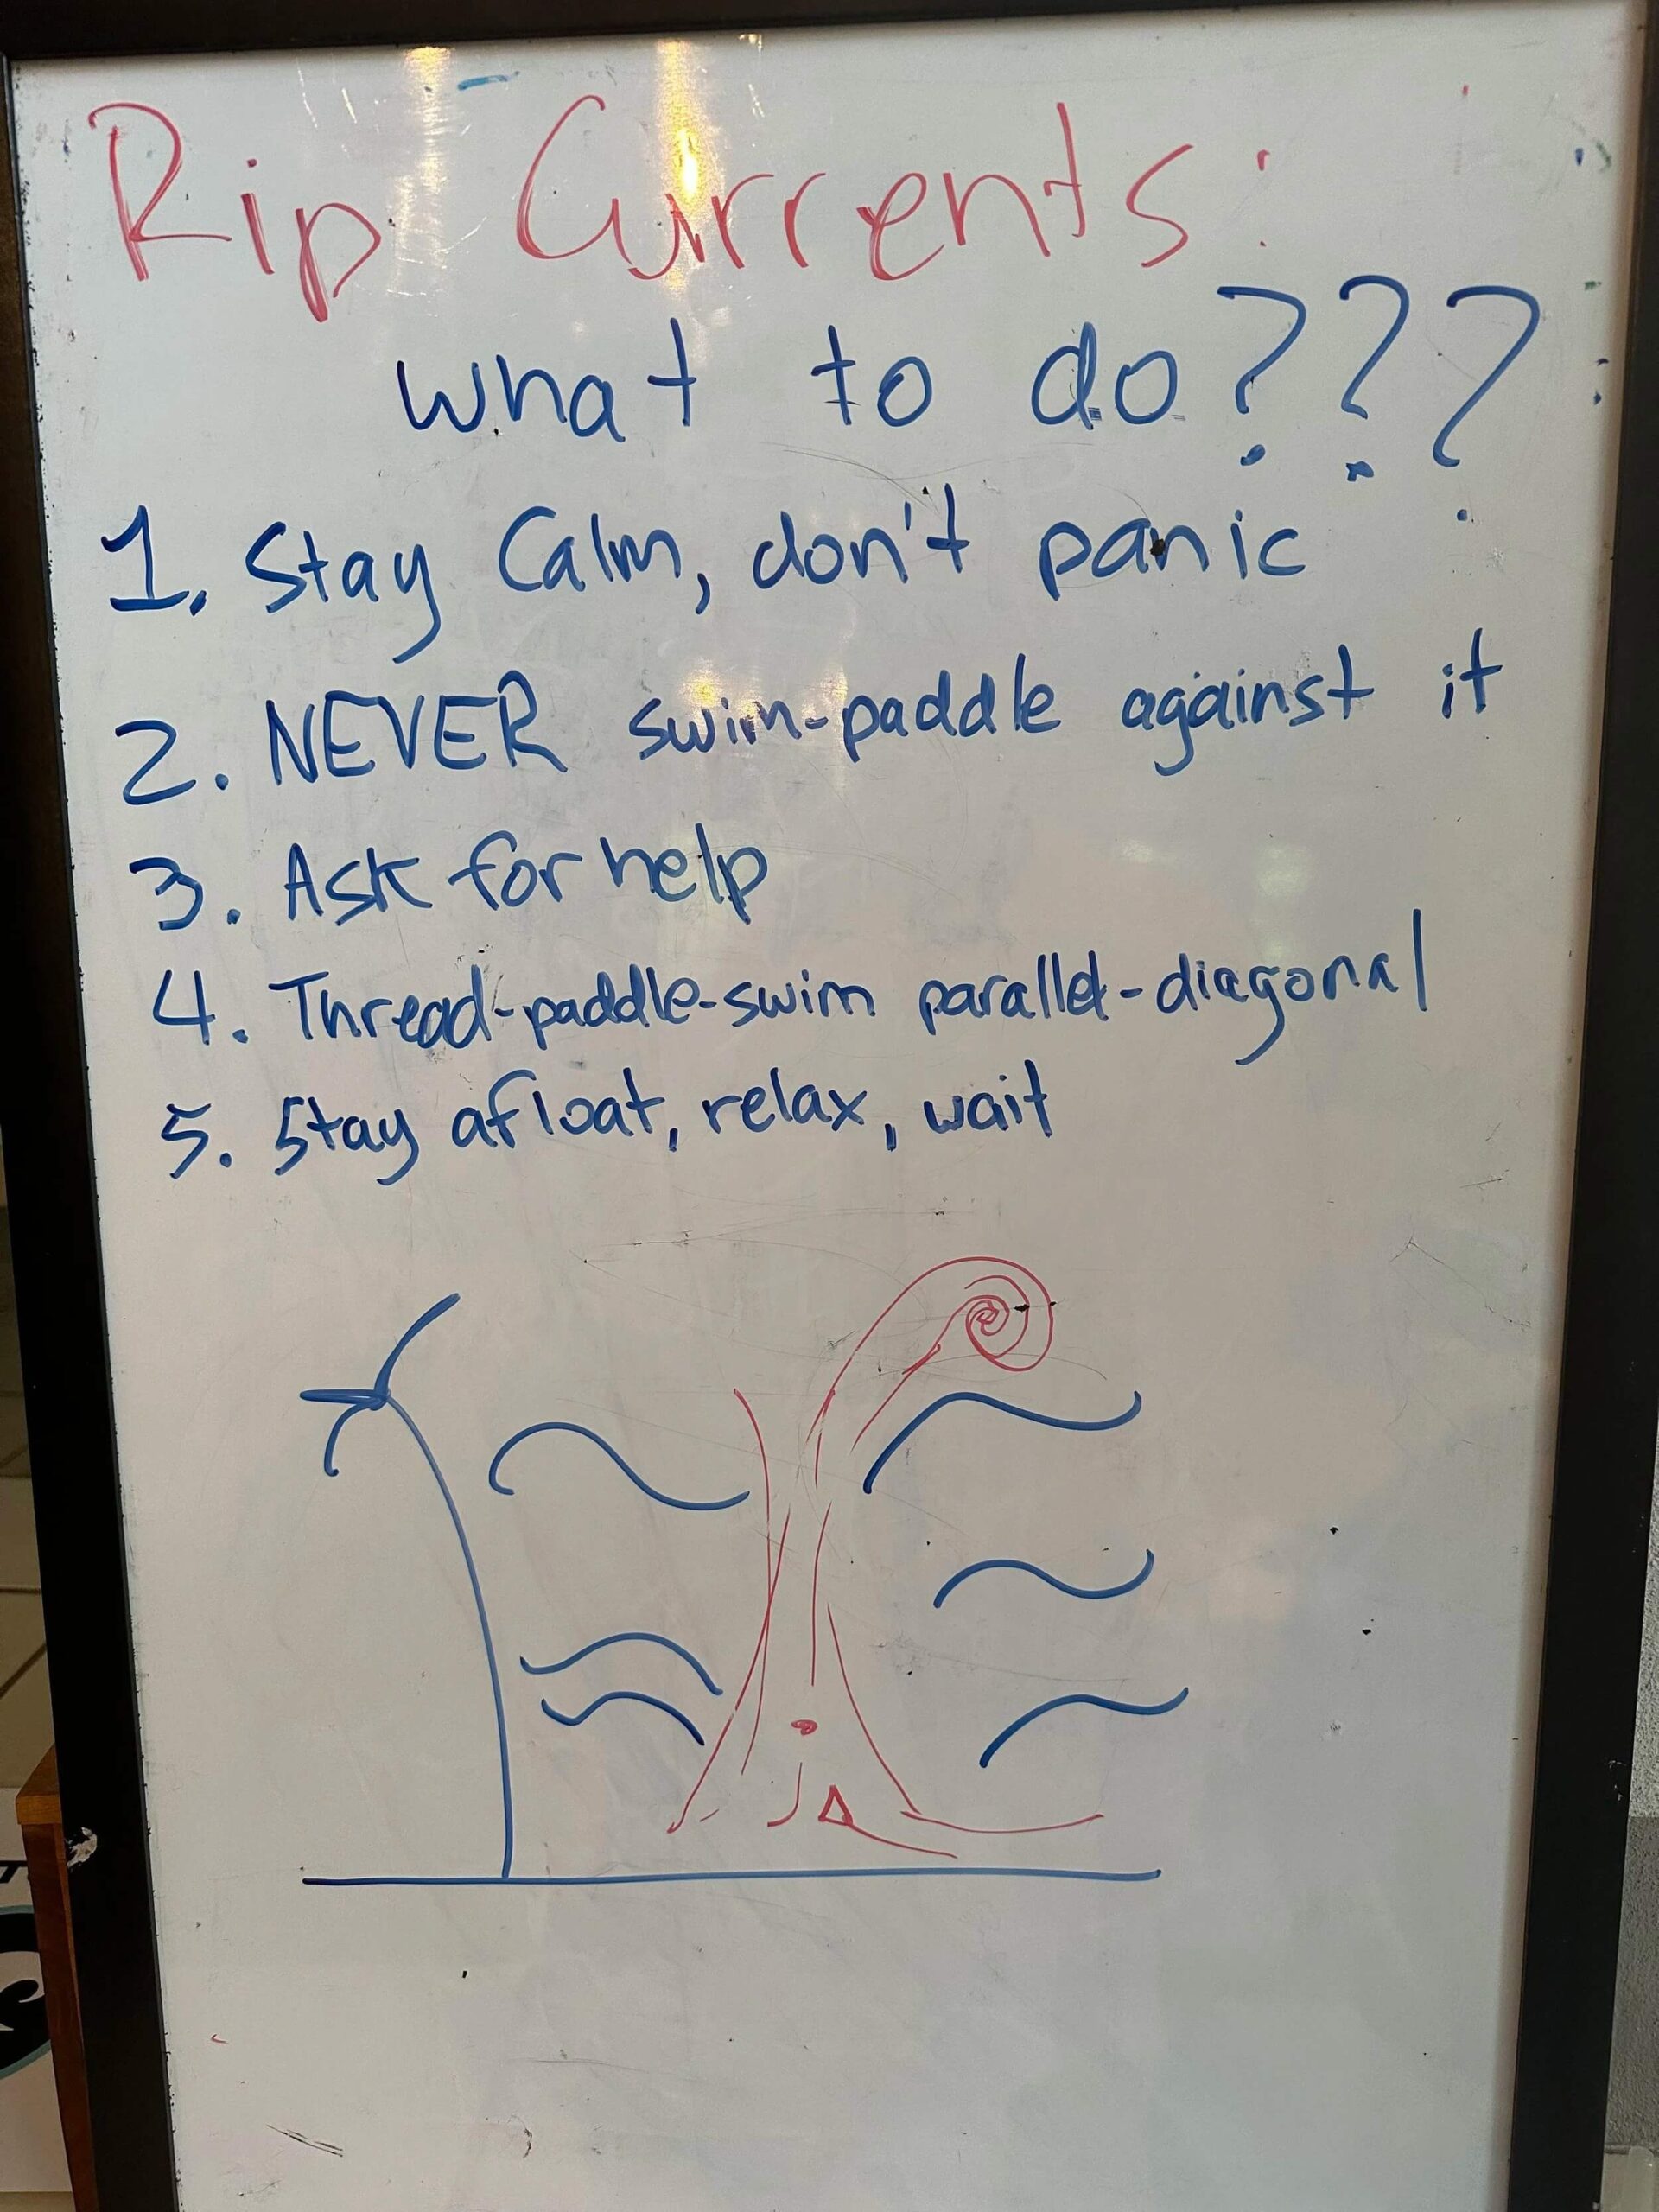 Rip Currents:
what to do???
1. Stay Calm, don't panic
2. NEVER swim-paddle against it
3. Ask for help
4. Thread-paddle-swim parallel-diagonal
5. Stay afloat, relax, wait